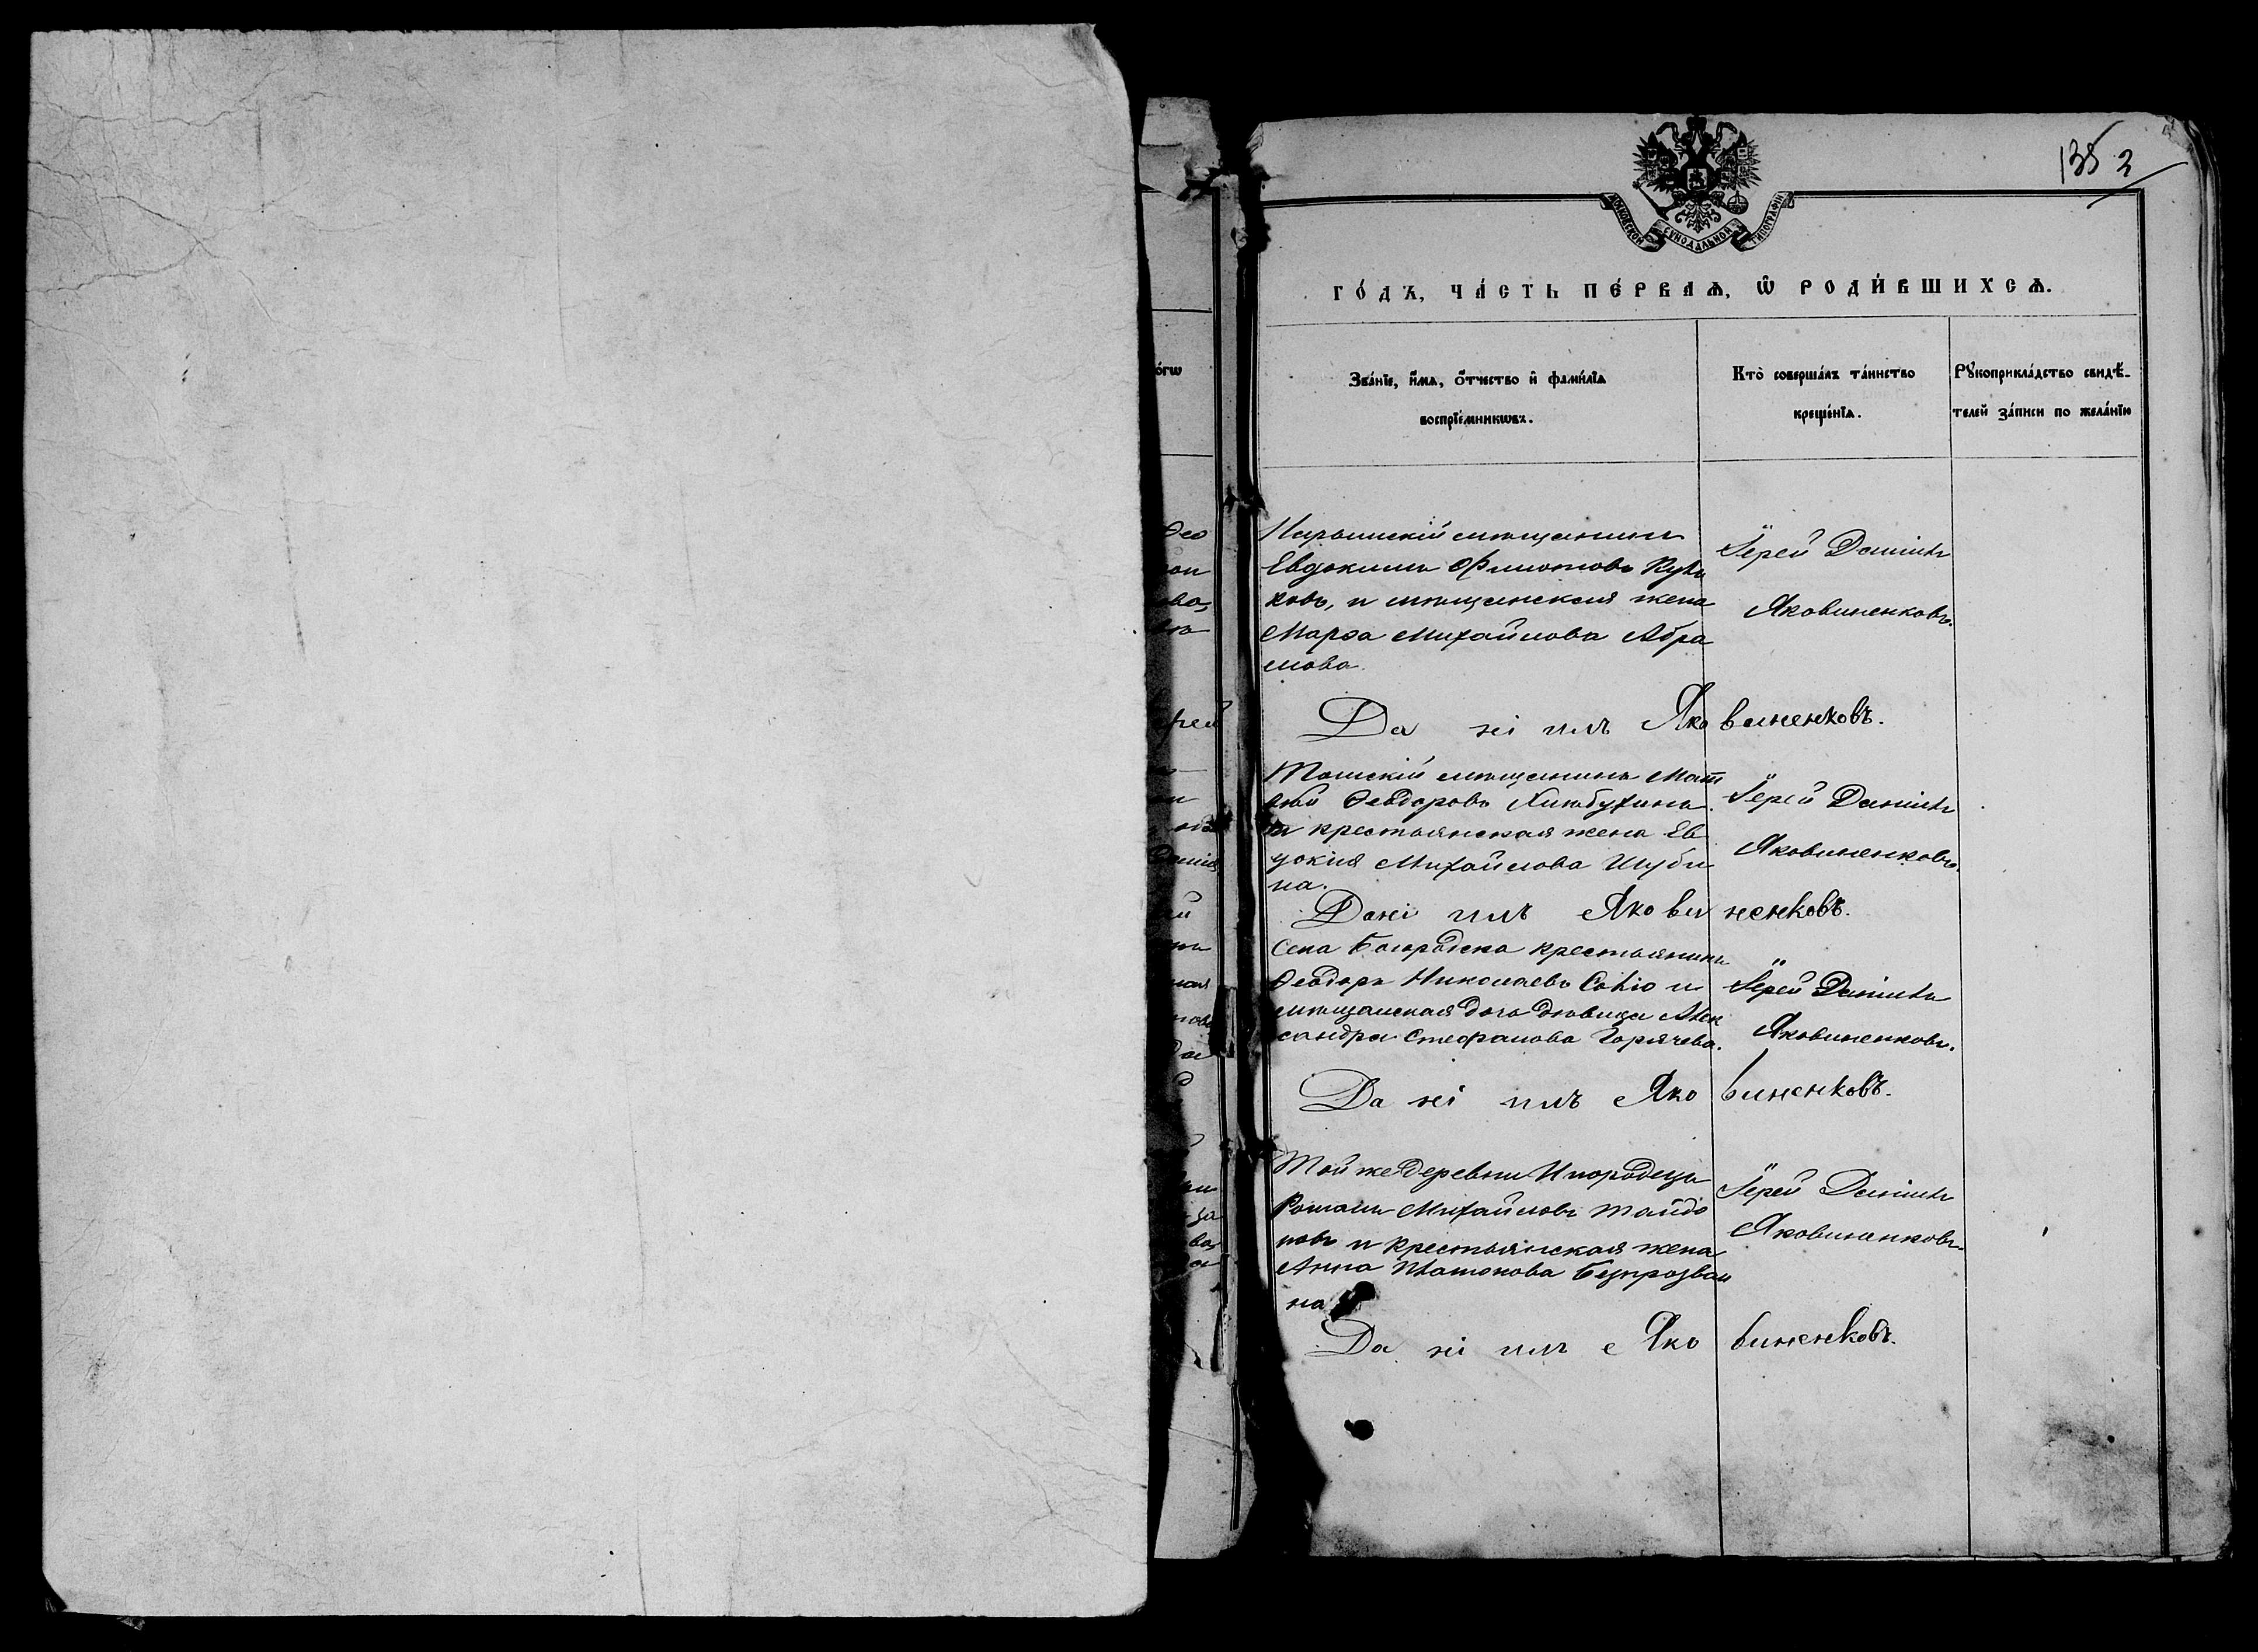 135 2
МОСКОВСКОЙ СѴНОДАЛЬНОЙ ТИПОГРАФІИ
го́дъ, ча́сть пе́рваѧ, ѡ҆ роди́вшихсѧ.
Зва́нїе, и҆́мѧ, ѻ҆́тчество и҆ фами́лїѧ
воспрїе́мникѡвъ.
Кто̀ соверша́лъ та́инство
креще́нїѧ.
Рꙋкоприкла́дство свидѣ́-
телей за́писи по жела́нїю
огѡ
мѣщанинъ
Евдокимъ Филиповъ Кули
ковъ, и мѣщанская жена
Марѳа Михайлова Абра
мова.
Іерей Даніилъ
Яковиненковъ.
Да ні илъ Яко виненковъ.
Томскій мѣщанинъ Мат
вѣй Ѳеодоровъ
и крестьянская жена Ев
докія Михайлова Шуби
на.
Іерей Даніилъ
Яковиненковъ.
Дані илъ Якови ненковъ.
Села крестьянинъ
Ѳеодоръ Николаевъ и
мѣщанская дочь дѣвица Алек
сандра Стефанова Горячева.
Іерей Даніилъ
Яковиненковъ.
Да ні илъ Яко виненковъ.
Той же деревни Инородецъ
Романъ Михайловъ Тайдо
новъ и крестьянская жена
Анна Платонова Безпрозван
на
Іерей Даніилъ
Яковиненковъ.
Да ні илъ Яко виненковъ.